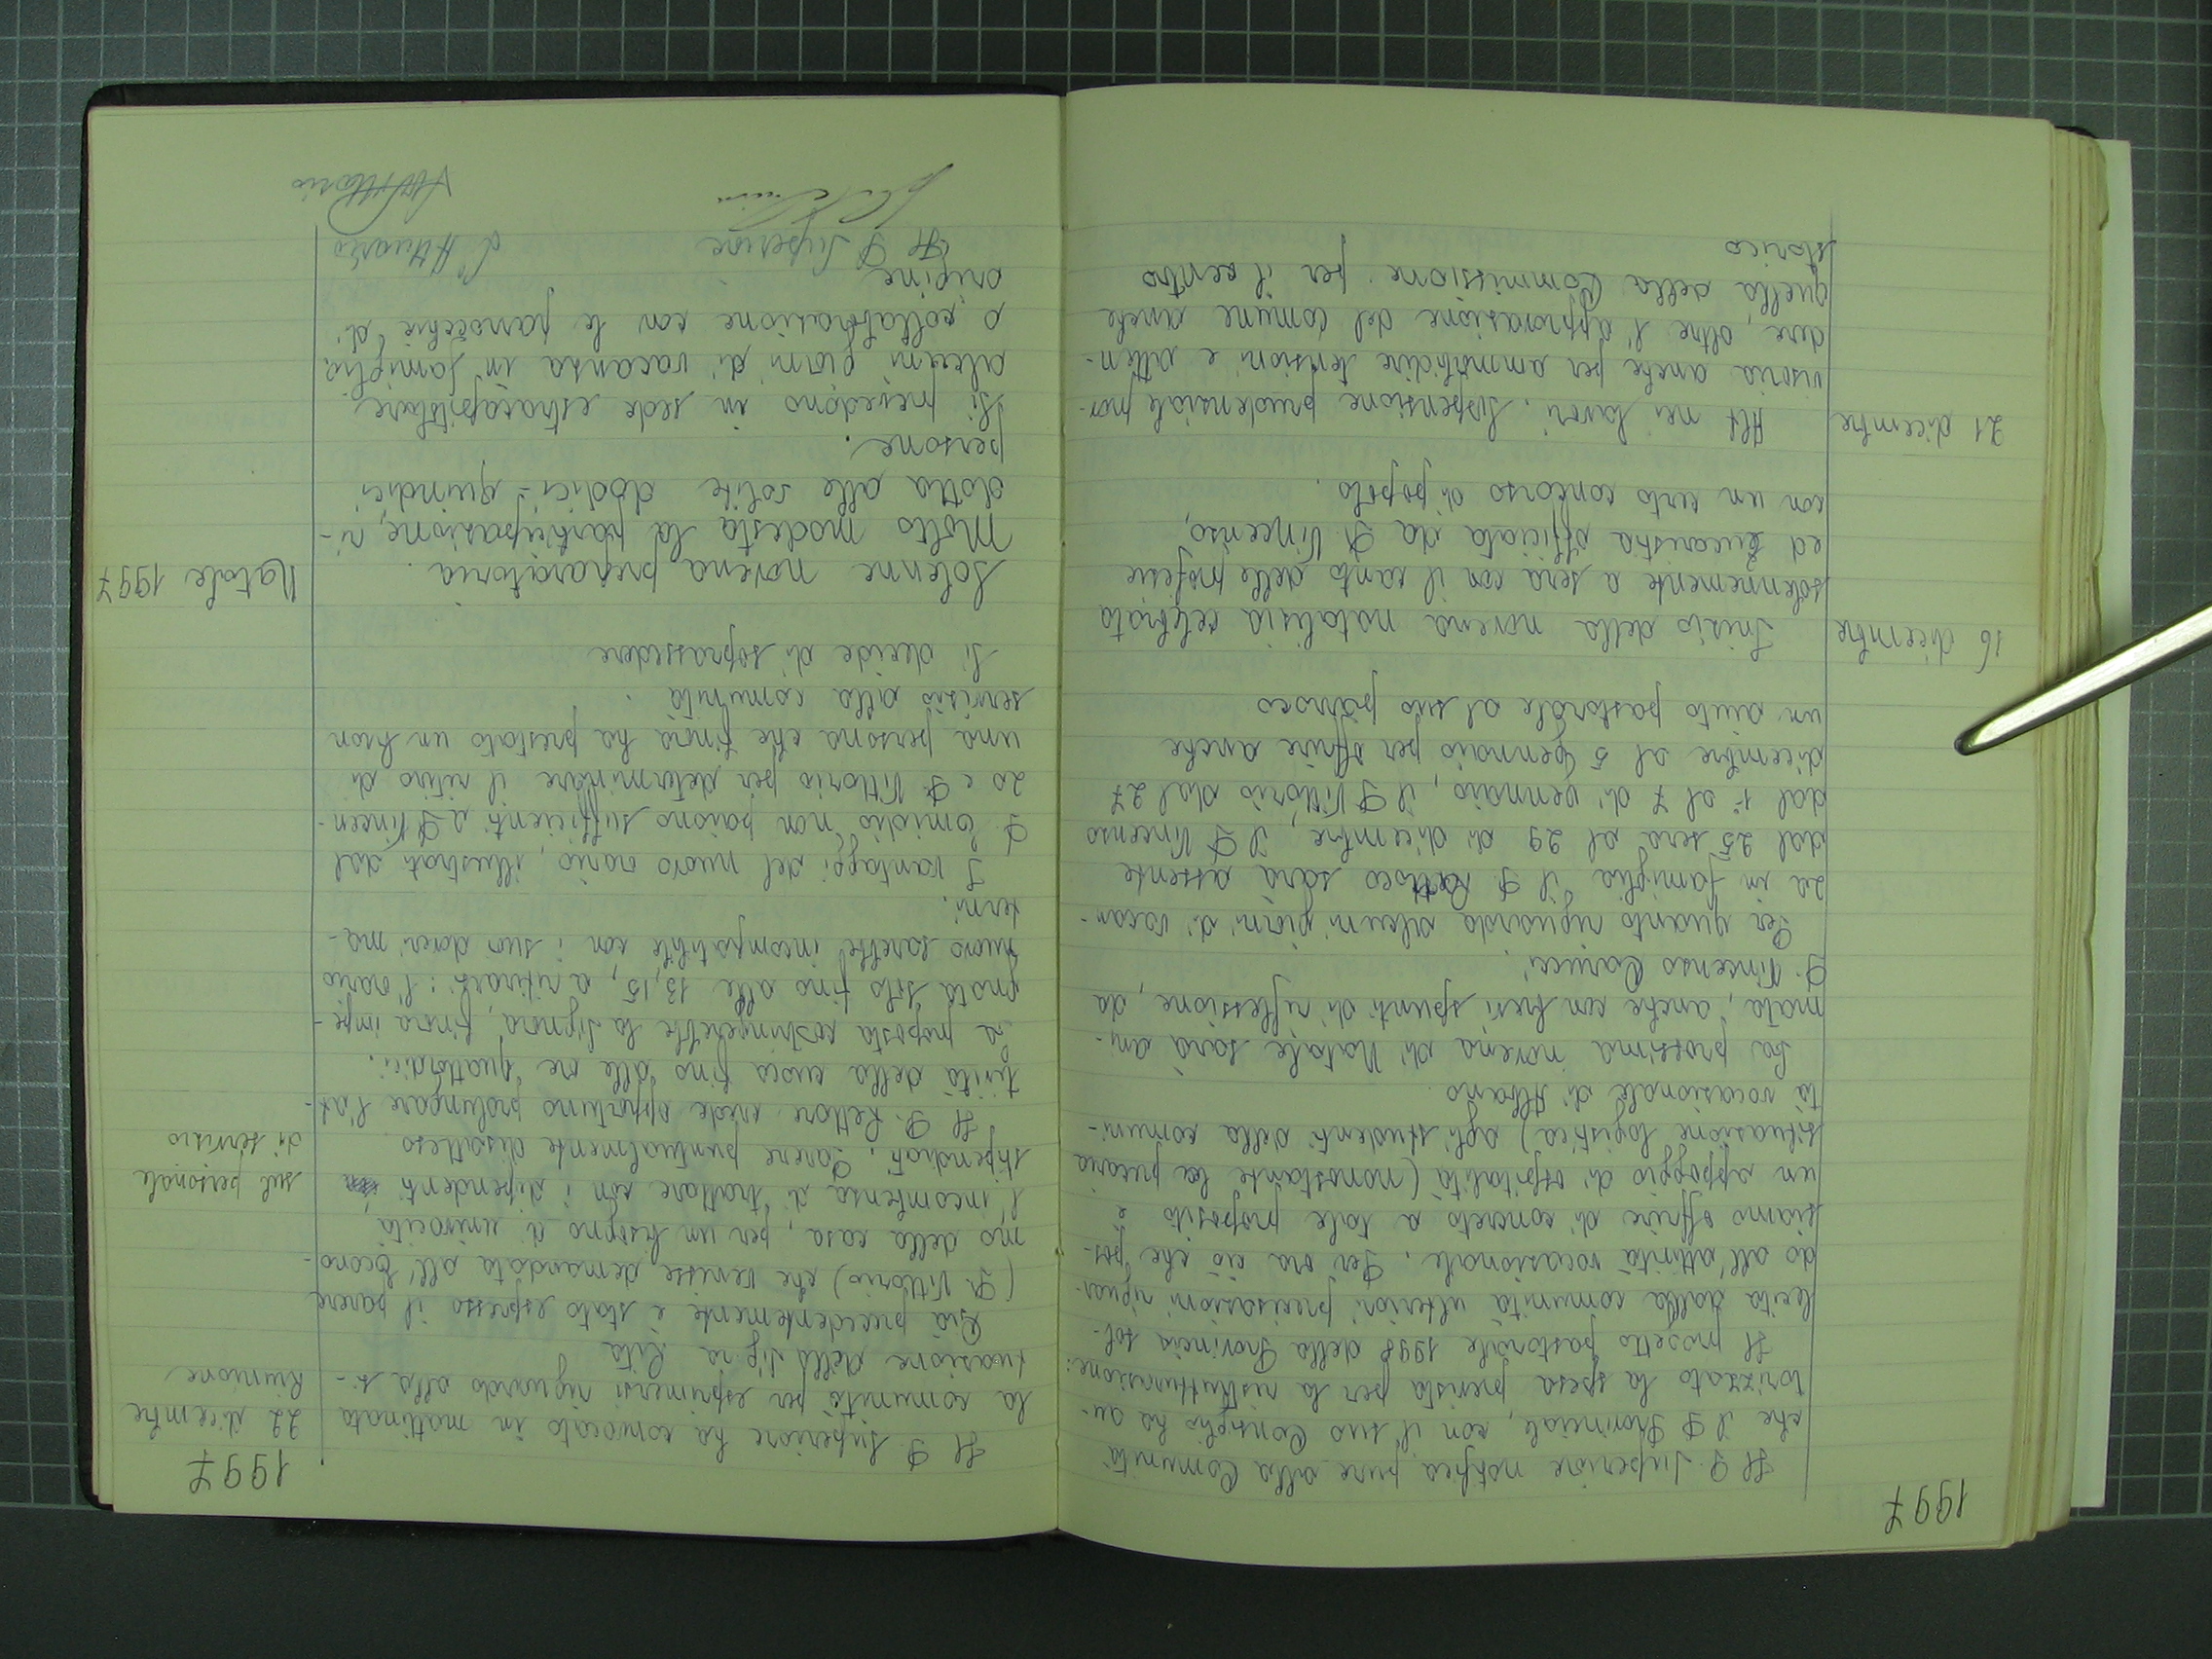 1997
Il P. Superiore notifica pure alla Comunità
che il P Provinciale, con il suo Consiglio ha au-
torizzato la spesa prevista per la ristrutturazione:
Il progetto pastorale 1998 della Provincia sol-
lecita dalla comunità ulteriori precisazioni riguar-
do all'attività vocazionale. Per ora ciò che pos-
siamo offrire di concreto a tale proposito è
un appoggio di ospitalità (nonostante la precaria
situazione logistica) agli studenti della comuni-
tà vocazionale di Albano.
La prossima novena di Natale sarà ani-
mata, anche con brevi spunti di riflessione, da
P. Vincenzo Carucci.
Per quanto riguarda alcuni giorni di vacan-
za in famiglia il P. Rettore sarà assente
dal 25 sera al 29 di dicembre, il P Vincenzo
dal 1° al 7 di gennaio, il P Vittorio dal 27
dicembre al 5 Gennaio per offrire anche
un aiuto pastorale al suo parroco
16 dicembre
Inizio della novena natalizia celebrata
solennemente a sera con il canto delle profezie
ed Eucaristia officiata da P. Vincenzo,
con un certo concorso di popolo.
21 dicembre
Alt nei lavori. Sospensione prudenziale prov-
visoria anche per ammorbidire tensioni e atten-
dere, oltre l'approvazione del comune anche
quella della Commissione per il centro
storico
1997
22 dicembre
Riunione
Il P. Superiore ha convocato in mattinata
la comunità per esprimersi riguardo alla si-
tuazione della Sig.ra Rita
Già precedentemente è stato espresso il parere
(P. Vittorio) che venisse demandata all'Econo-
mo della casa, per un bisogno di univocità
l'incombenza di trattare con i dipendenti
stipendiati. Parere puntualmente disatteso
sul personale
di servizio
Il P. Rettore crede opportuno prolungare l'at-
tività della cuoca fino alle ore quattordici.
La proposta costringerebbe la Signora, finora impe-
gnata solo fino alle 13,15, a ritirarsi: l'orario
nuovo sarebbe incompatibile con i suoi doveri ma-
terni.
I vantaggi del nuovo orario, illustrati dal
P. Emidio non paiono sufficienti a P Vincen-
zo e P Vittorio per determinare il ritiro di
una persona che finora ha prestato un buon
servizio alla comunità.
Si decide di soprassedere
Natale 1997
Solenne novena preparatoria.
Molto modesta la partecipazione, ri-
dotta alle solite dodici-quindici
persone.
Si prevedono in sede extracapitolare
alcuni giorni di vacanza in famiglia
o collaborazione con le parrocchie di
origine
Il P Superiore
L'Attuario